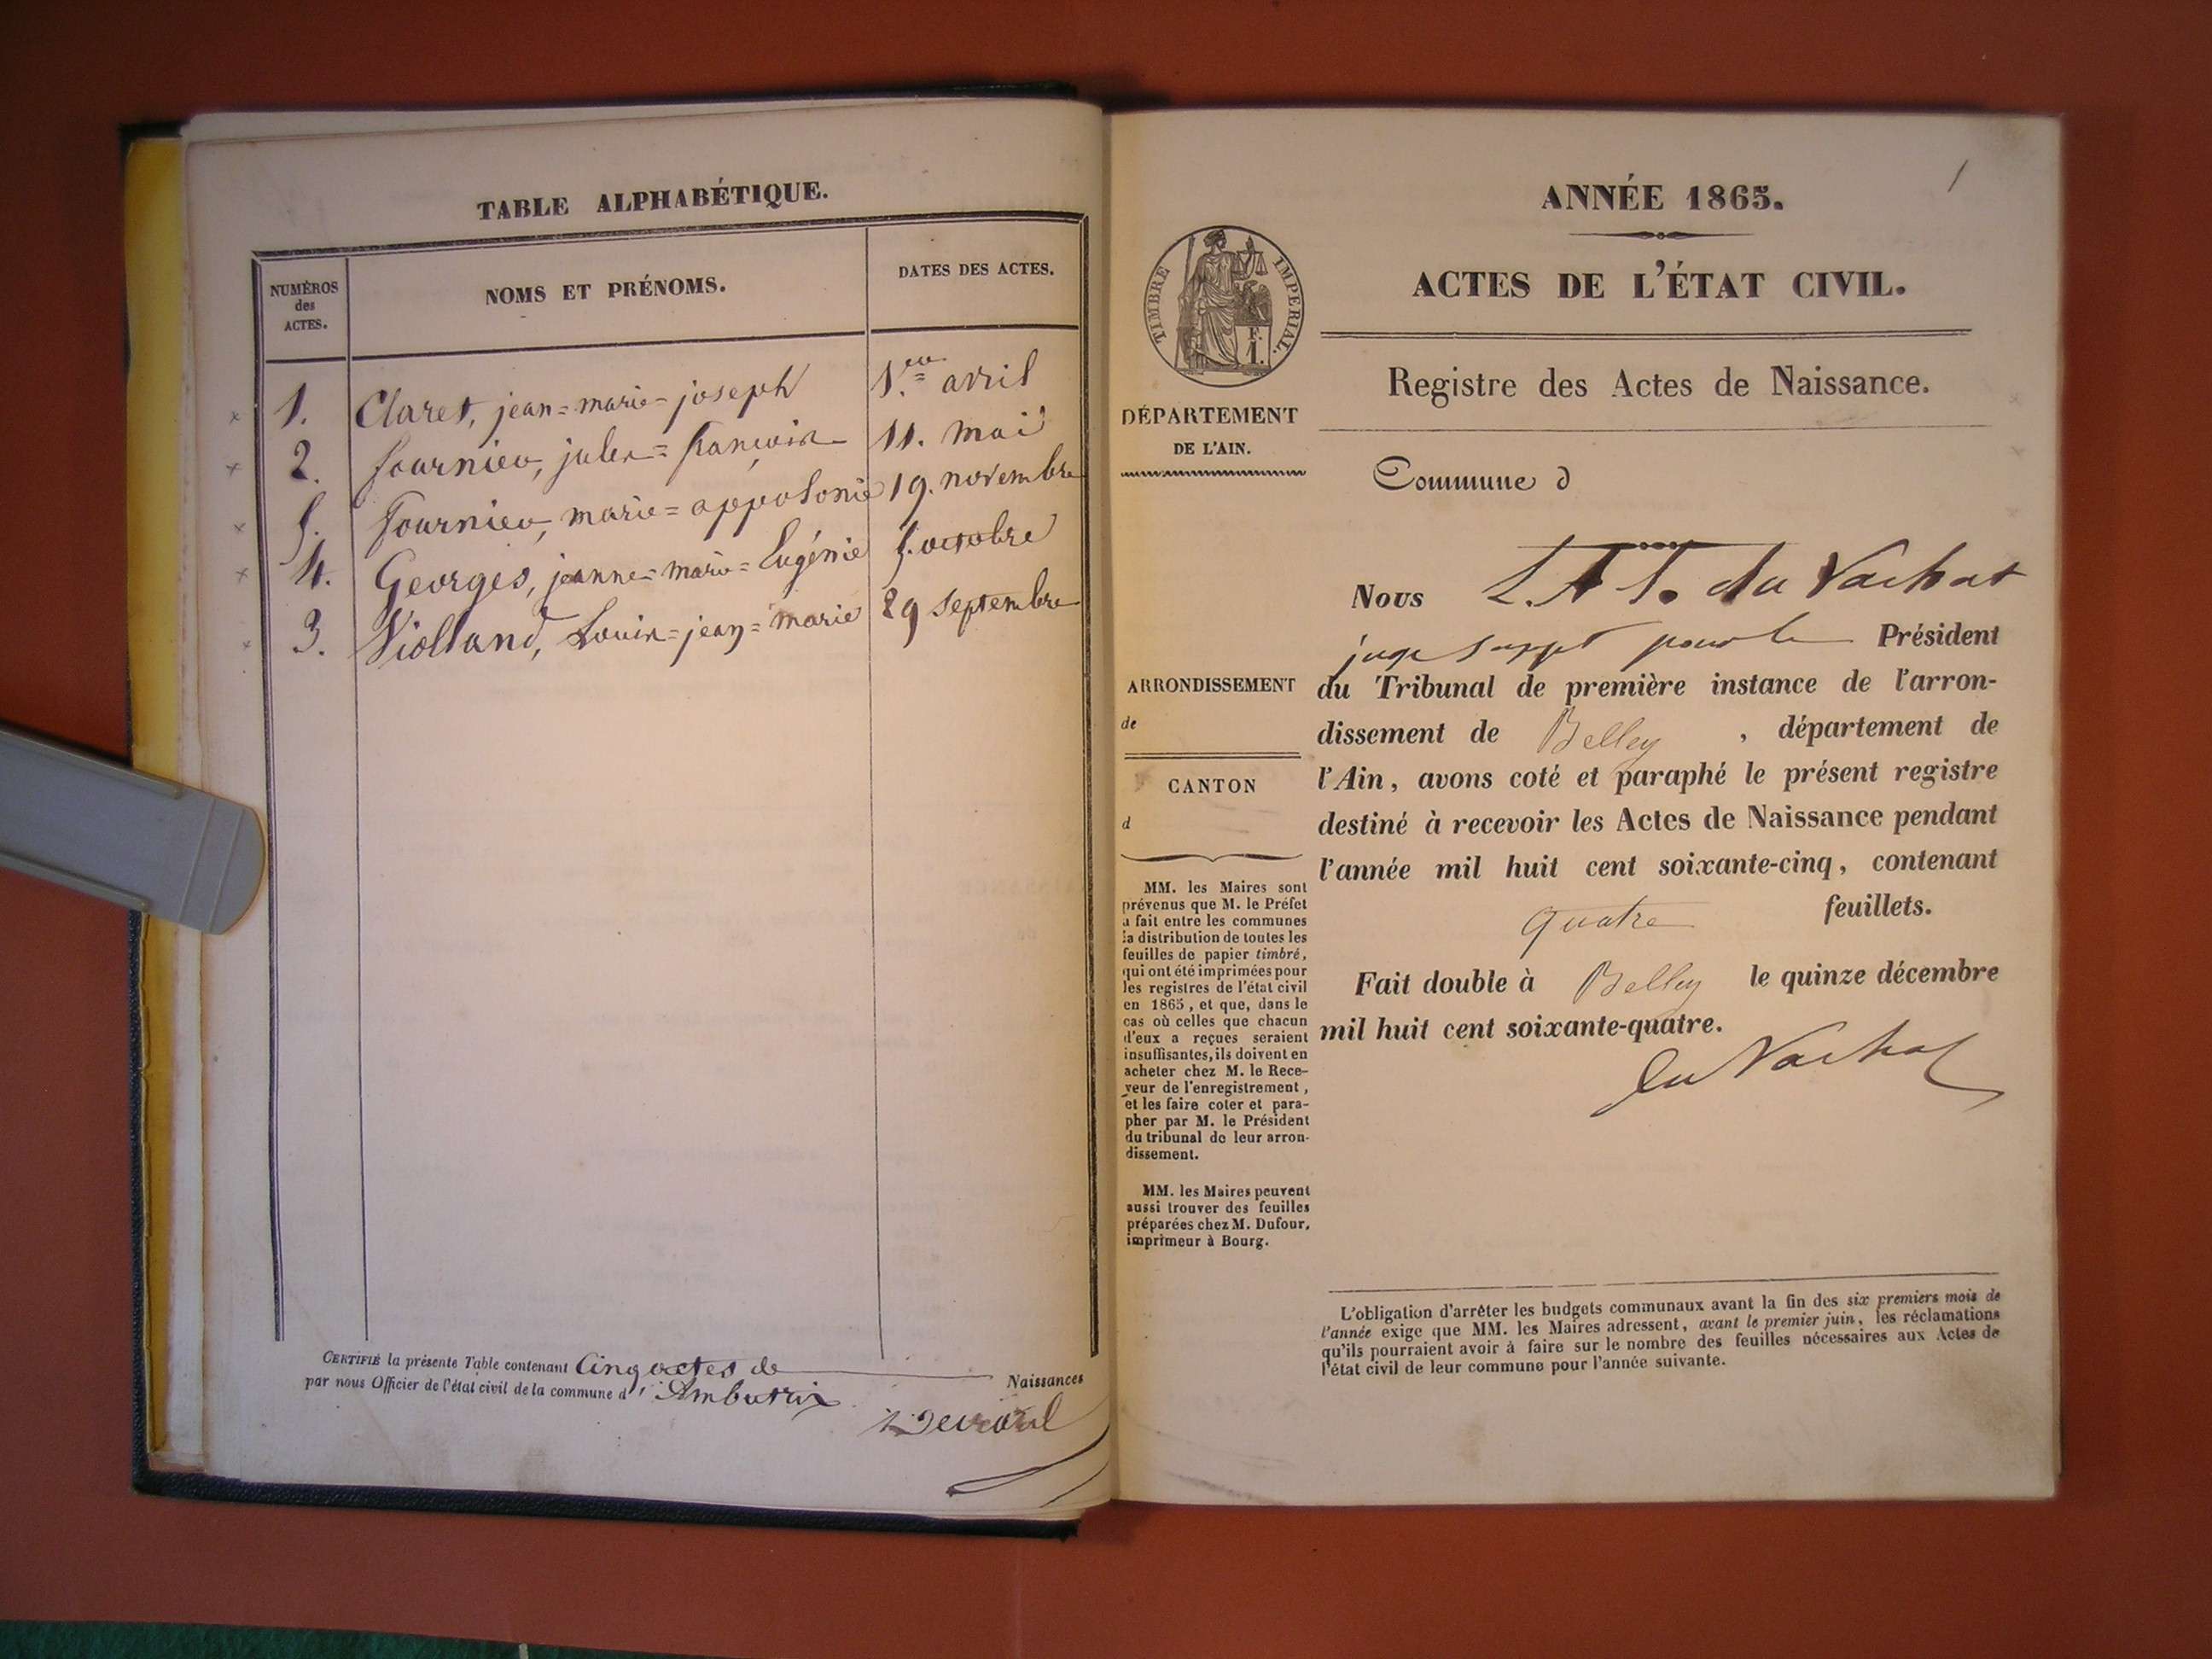 TABLE ALPHABÉTIQUE.
NUMÉROS
des
ACTES.
NOMS ET PRÉNOMS.
DATES DES ACTES.
1. Claret, jean=marie=joseph 1.er avril
2. fournier, jules=françois 11. mai
5. fournier, marie=appolonie 19. novembre
4. Georges, jeanne=marie=Eugénie 5. octobre
3. Violland, Louis=jean=marie 29 septembre
CERTIFIÉ la présente Table contenant Cinq actes de Naissances
par nous Officier de l'état civil de la commune d'Ambutrix
1
ANNÉE 1865.
ACTES DE L'ÉTAT CIVIL.
TIMBRE IMPERIAL.
F.
1.
Registre des Actes de Naissance.
DÉPARTEMENT
DE L'AIN.
Commune d
ARRONDISSEMENT
de
CANTON
d
MM. les Maires sont
prévenus que M. le Préfet
a fait entre les communes
la distribution de toutes les
feuilles de papier timbré,
qui ont été imprimées pour
les registres de l'état civil
en 1865, et que, dans le
cas où celles que chacun
d'eux a reçues seraient
insuffisantes, ils doivent en
acheter chez M. le Rece-
veur de l'enregistrement,
et les faire coter et para-
pher par M. le Président
du tribunal de leur arron-
dissement.
MM. les Maires peuvent
aussi trouver des feuilles
préparées chez M. Dufour,
imprimeur à Bourg.
Nous du Vachat
juge suppt pour le Président
du Tribunal de première instance de l'arron-
dissement de Belley, département de
l'Ain, avons coté et paraphé le présent registre
destiné à recevoir les Actes de Naissance pendant
l'année mil huit cent soixante-cinq, contenant
quatre feuillets.
Fait double à Belley le quinze décembre
mil huit cent soixante-quatre.
du Vachat
L'obligation d'arrêter les budgets communaux avant la fin des six premiers mois de
l'année exige que MM. les Maires adressent, avant le premier juin, les réclamations
qu'ils pourraient avoir à faire sur le nombre des feuilles nécessaires aux Actes de
l'état civil de leur commune pour l'année suivante.